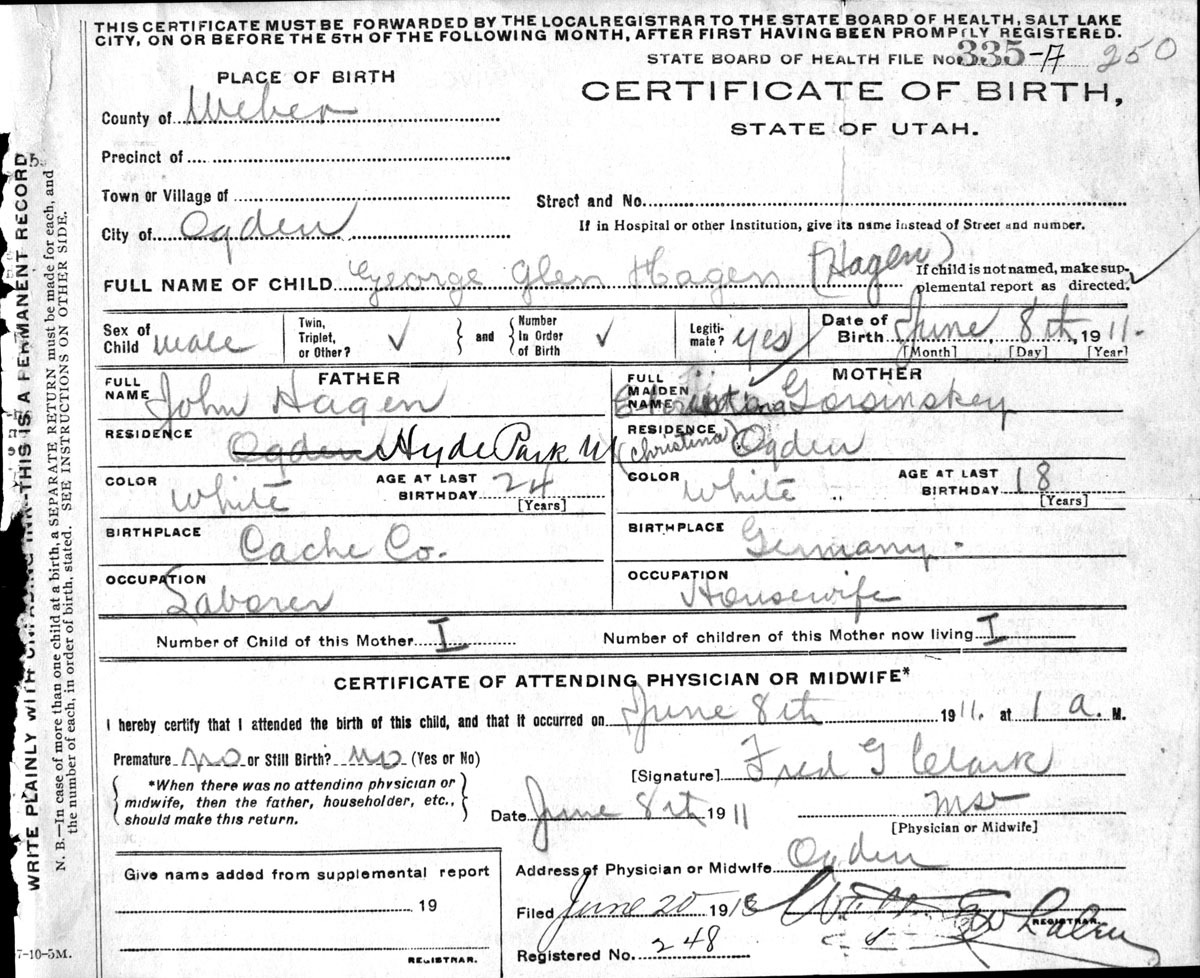 THIS CERTIFICATE MUST BE FORWARDED BY THE LOCAL REGISTRAR TO THE STATE BOARD OF HEALTH, SALT LAKE
CITY, ON OR BEFORE THE 5TH OF THE FOLLOWING MONTH, AFTER FIRST HAVING BEEN PROMPTLY REGISTERED.
STATE BOARD OF HEALTH FILE No. 335-A 250
PLACE OF BIRTH
CERTIFICATE OF BIRTH,
STATE OF UTAH.
County of Weber
Precinct of
Town or Village of
Street and No.
City of Ogden
If in Hospital or other Institution, give its name instead of Street and number.
FULL NAME OF CHILD George Glen Hagen (Hagen)
If child is not named, make sup-
plemental report as directed.
Sex of Child male
Twin, Triplet, or Other? ✓ and Number In Order of Birth ✓
Legiti-mate? yes
Date of Birth June 8th, 1911.
[Month] [Day] [Year]
FATHER
FULL NAME John Hagen
RESIDENCE Ogden Hyde Park
COLOR White
AGE AT LAST BIRTHDAY 24
[Years]
BIRTHPLACE Cache Co.
OCCUPATION Laborer
MOTHER
FULL MAIDEN NAME Gorsinskey
(Christina)
RESIDENCE Ogden
COLOR White "
AGE AT LAST BIRTHDAY 18
[Years]
BIRTHPLACE Germany -
OCCUPATION Housewife
Number of Child of this Mother I
Number of children of this Mother now living I
CERTIFICATE OF ATTENDING PHYSICIAN OR MIDWIFE*
I hereby certify that I attended the birth of this child, and that it occurred on June 8th 1911. at 1 a. M.
Premature no or Still Birth? no (Yes or No)
*When there was no attending physician or
midwife, then the father, householder, etc.,
should make this return.
[Signature] Fred G Clark
Date June 8th 1911
[Physician or Midwife]
Address of Physician or Midwife Ogden
Give name added from supplemental report
19
REGISTRAR.
Filed June 20 191
REGISTRAR
Registered No. 248
7-10-5M.
WRITE PLAINLY WITH INK—THIS IS A PERMANENT RECORD
N. B.—In case of more than one child at a birth, a SEPARATE RETURN must be made for each, and
the number of each, in order of birth, stated. SEE INSTRUCTIONS ON OTHER SIDE.